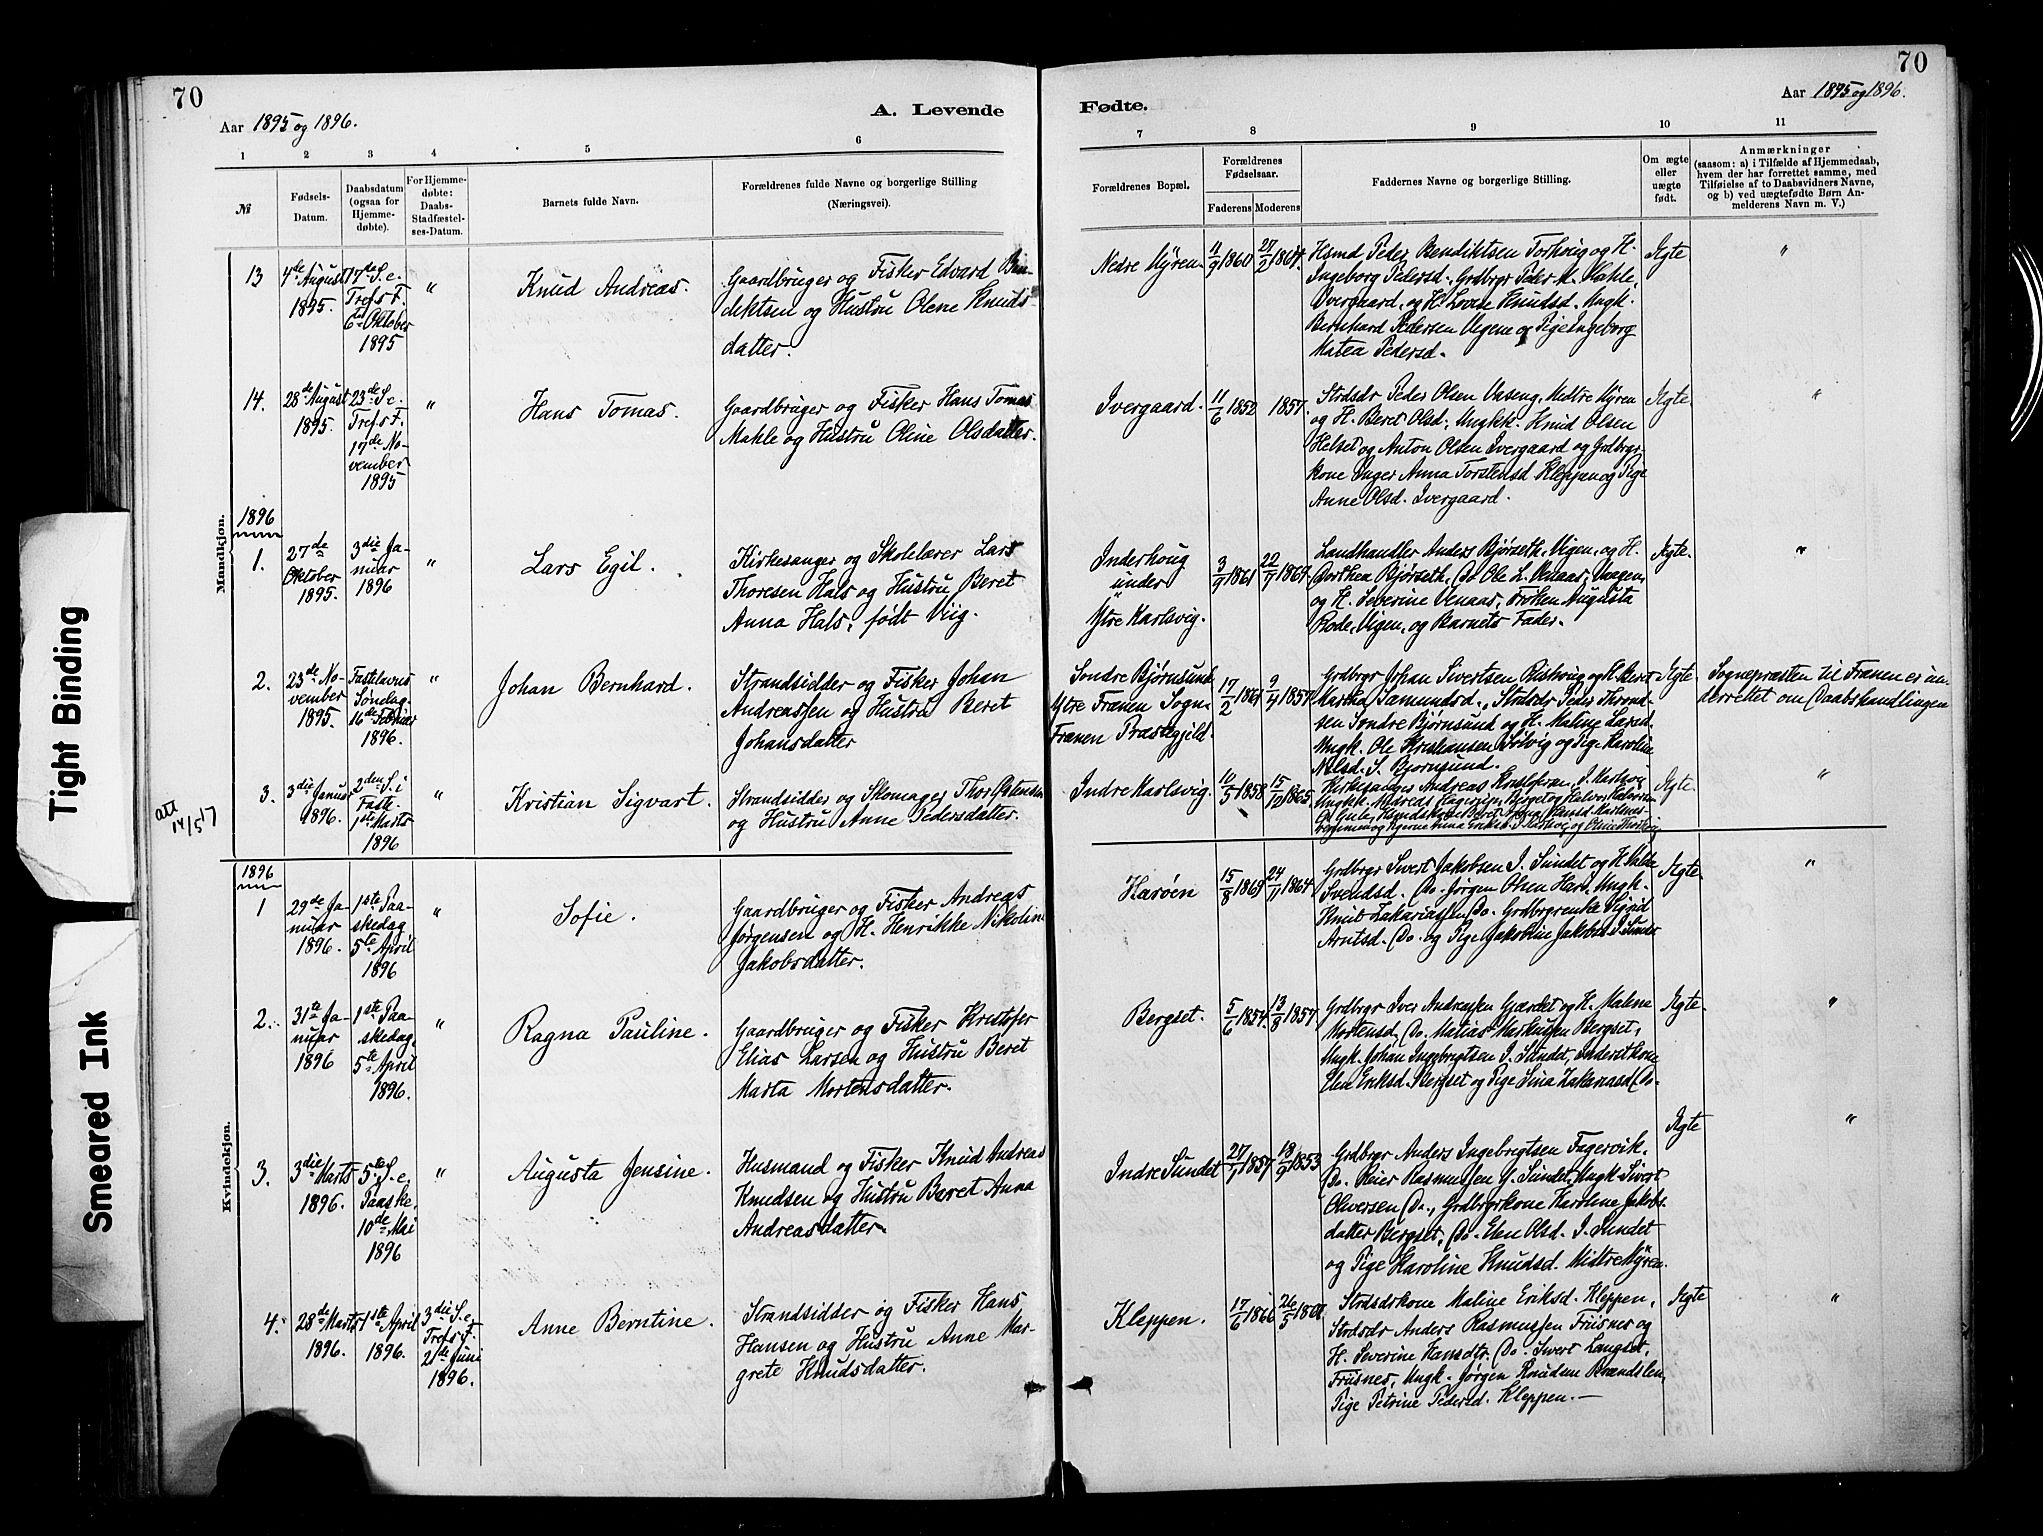 70
70
Aar 1895 og 1896.
A. Levende
Fødte.
Aar 1895 og 1896.
1 2 3 4 5 6 7 8 9 10 11
№
Fødsels-
Datum.
Daabsdatum
(ogsaa for
Hjemme-
døbte).
For Hjemme-
døbte:
Daabs-
Stadfæstel-
ses-Datum.
Barnets fulde Navn.
Forældrenes fulde Navne og borgerlige Stilling
(Næringsvei).
Forældrenes Bopæl.
Forældrenes
Fødselsaar.
Faderens Moderens
Faddernes Navne og borgerlige Stilling.
Om ægte
eller
uægte
født.
Anmærkninger
(saasom: a) i Tilfælde af Hjemmedaab,
hvem der har forrettet samme, med
Tilføielse af to Daabsvidners Navne,
og b) ved uægtefødte Børn An-
melderens Navn m. V.)
Mandkjøn.
13
4de August
1895.
17de S. e.
Tref. F.
6te Oktober
1895
"
Knud Andreas.
Gaardbruger og Fisker Edvard Ben-
diktsen og Hustru Olene Knuds
datter.
Nedre Myren
11/9 1860
27/2 1864.
Hsmd Peder Bendiktsen Torhoug og H.
Ingeborg Pedersd. Grdbrgr Peder M. Mahle,
Ivergaard, og H. Lovise Knudsd. Ungk.
Bernhard Pedersen Vigene og Pige Ingeborg
Matea Pedersd.
Ægte
"
14.
28de August
1895.
23de S. e.
Tref. F.
17de No-
vember
1895
"
Hans Tomas.
Gaardbruger og Fisker Hans Tomas
Mahle og Hustru Oline Olsdatter.
Ivergaard.
11/6 1852
1857.
Strdsdr Peder Olsen Vaseng, Mettre Myren
og H. Beret Olsd., Ungkk. Knud Olsen
Helset og Anton Olsen Ivergaard og Grdbrgr
kone Inger Anna Torstensd Kleppen og Pige
Anne Olsd. Ivergaard.
Ægte
"
1896
1.
27de
Oktober
1895.
3die Ja-
nuar
1896
"
Lars Egil.
Kirkesanger og Skolelærer Lars
Thoresen Hals og Hustru Beret
Anna Hals, født Viig.
Inderhoug
under
Ytre Karlsvig.
3/7 1861
22/7 1867
Landhandler Anders Bjørseth, Vigen, og H.
Dorthea Bjørseth, Do Ole L. Venaas, Vaagen,
og H. Severine Venaas, Frøken Augusta
Rode, Vigen, og Barnets Fader.
Ægte.
"
2.
23de No-
vember
1895.
Fastelavns
Søndag
16de Februar
1896.
"
Johan Bernhard.
Strandsidder og Fisker Johan
Andreassen og Hustru Beret
Johansdatter
Søndre Bjørnsund
Ytre Frænen Sogn.
Frænen Præstegjeld.
17/2 1861
9/4 1857
Grdbrgr Johan Sivertsen Rishoug og H. Beret
Martha Samundsd., Strdsdr Peder Thrond-
sen Søndre Bjørnsund og H. Maline Larsd.
Ungk. Ole Kristiansen Solvig og Pige Karoline
Nilsd. S. Bjørnsund.
Ægte
Sognepræsten til Frænen er un-
derrettet om Daabshandlingen
att
14/5 17
3.
3die Januar
1896.
2den S. i
Faste.
1ste Marts
1896
"
Kristian Sigvart.
Strandsidder og Skomager Thor Petersen
og Hustru Anne Pedersdatter.
Indre Karlsvig.
10/5 1858
15/12 1865
Kirkesanger Andreas
Ægte.
"
Kvindekjøn.
1896
1
29de Ja-
nuar
1896.
1ste Paa-
skedag
5te April
1896
"
Sofie.
Gaardbruger og Fisker Andreas
Jørgensen og H. Henrikke Nikoline
Jakobsdatter.
Harøen
15/8 1863
24/11 1864.
Grdbrgr Sivert Jakobsen I. Sundet og H.
Svendsd. Do. Jørgen Olsen Harø. Ungk.
Knut Zakariassen Do. Grdbrgrenke Sigrid
Arntsd. Do. og Pige Jakobine Jakobsd I. Sundet
Ægte.
"
2.
31te Ja-
nuar
1896
1ste Paa-
skedag.
5te April
1896.
"
Ragna Pauline.
Gaardbruger og Fisker Kristofer
Elias Larsen og Hustru Beret
Marta Mortensdatter.
Bergset.
5/6 1854.
13/8 1857
Grdbrgr Iver Andreassen Gjærdet og H. Malene
Mortensd, Do. Matias Markussen Bergset,
Ungk. Johan Ingebrigtsen I. Sundet, Inderstkone
Elen Eriksd. Bergset og Pige Sina Zakariasd Do.
Ægte.
"
3.
3die Marts
1896.
5te S. e.
Paaske.
10de Mai
1896
"
Augusta Jensine.
Husmand og Fisker Knud Andreas
Knudsen og Hustru Beret Anna
Andreasdatter.
Indre Sundet
27/1 1857
18/9 1853
Grdbrgr Anders Ingebrigtsen Fagervik.
Do. Peier Rasmussen Y. Sundet, Ungk Sivert
Oliversen Do., Grdbrgrkone Karoline Jakobs-
datter Bergset, Do. Elen Olsd. I. Sundet
og Pige Karoline Knudsd. Mittre Myren.
Ægte
"
4.
28de Marts
1896.
1ste April
1896.
3die S. e.
Tref. F.
21de Juni
1896.
Anne Berntine.
Strandsidder og Fisker Hans
Hansen og Hustru Anne Mar-
grete Knudsdatter.
Kleppen.
17/6 1866
26/5 1861
Strdsdrkone Maline Eriksd. Kleppen,
Strdsdr Anders Rasmussen Frisnes og
H. Severine Hansdtr. Do. Sivert Langset,
Frisnes, Ungk. Jørgen Knudsen Brandslen,
Pige Petrine Pedersd. Kleppen.—
Ægte
"
Tight Binding
Smeared Ink